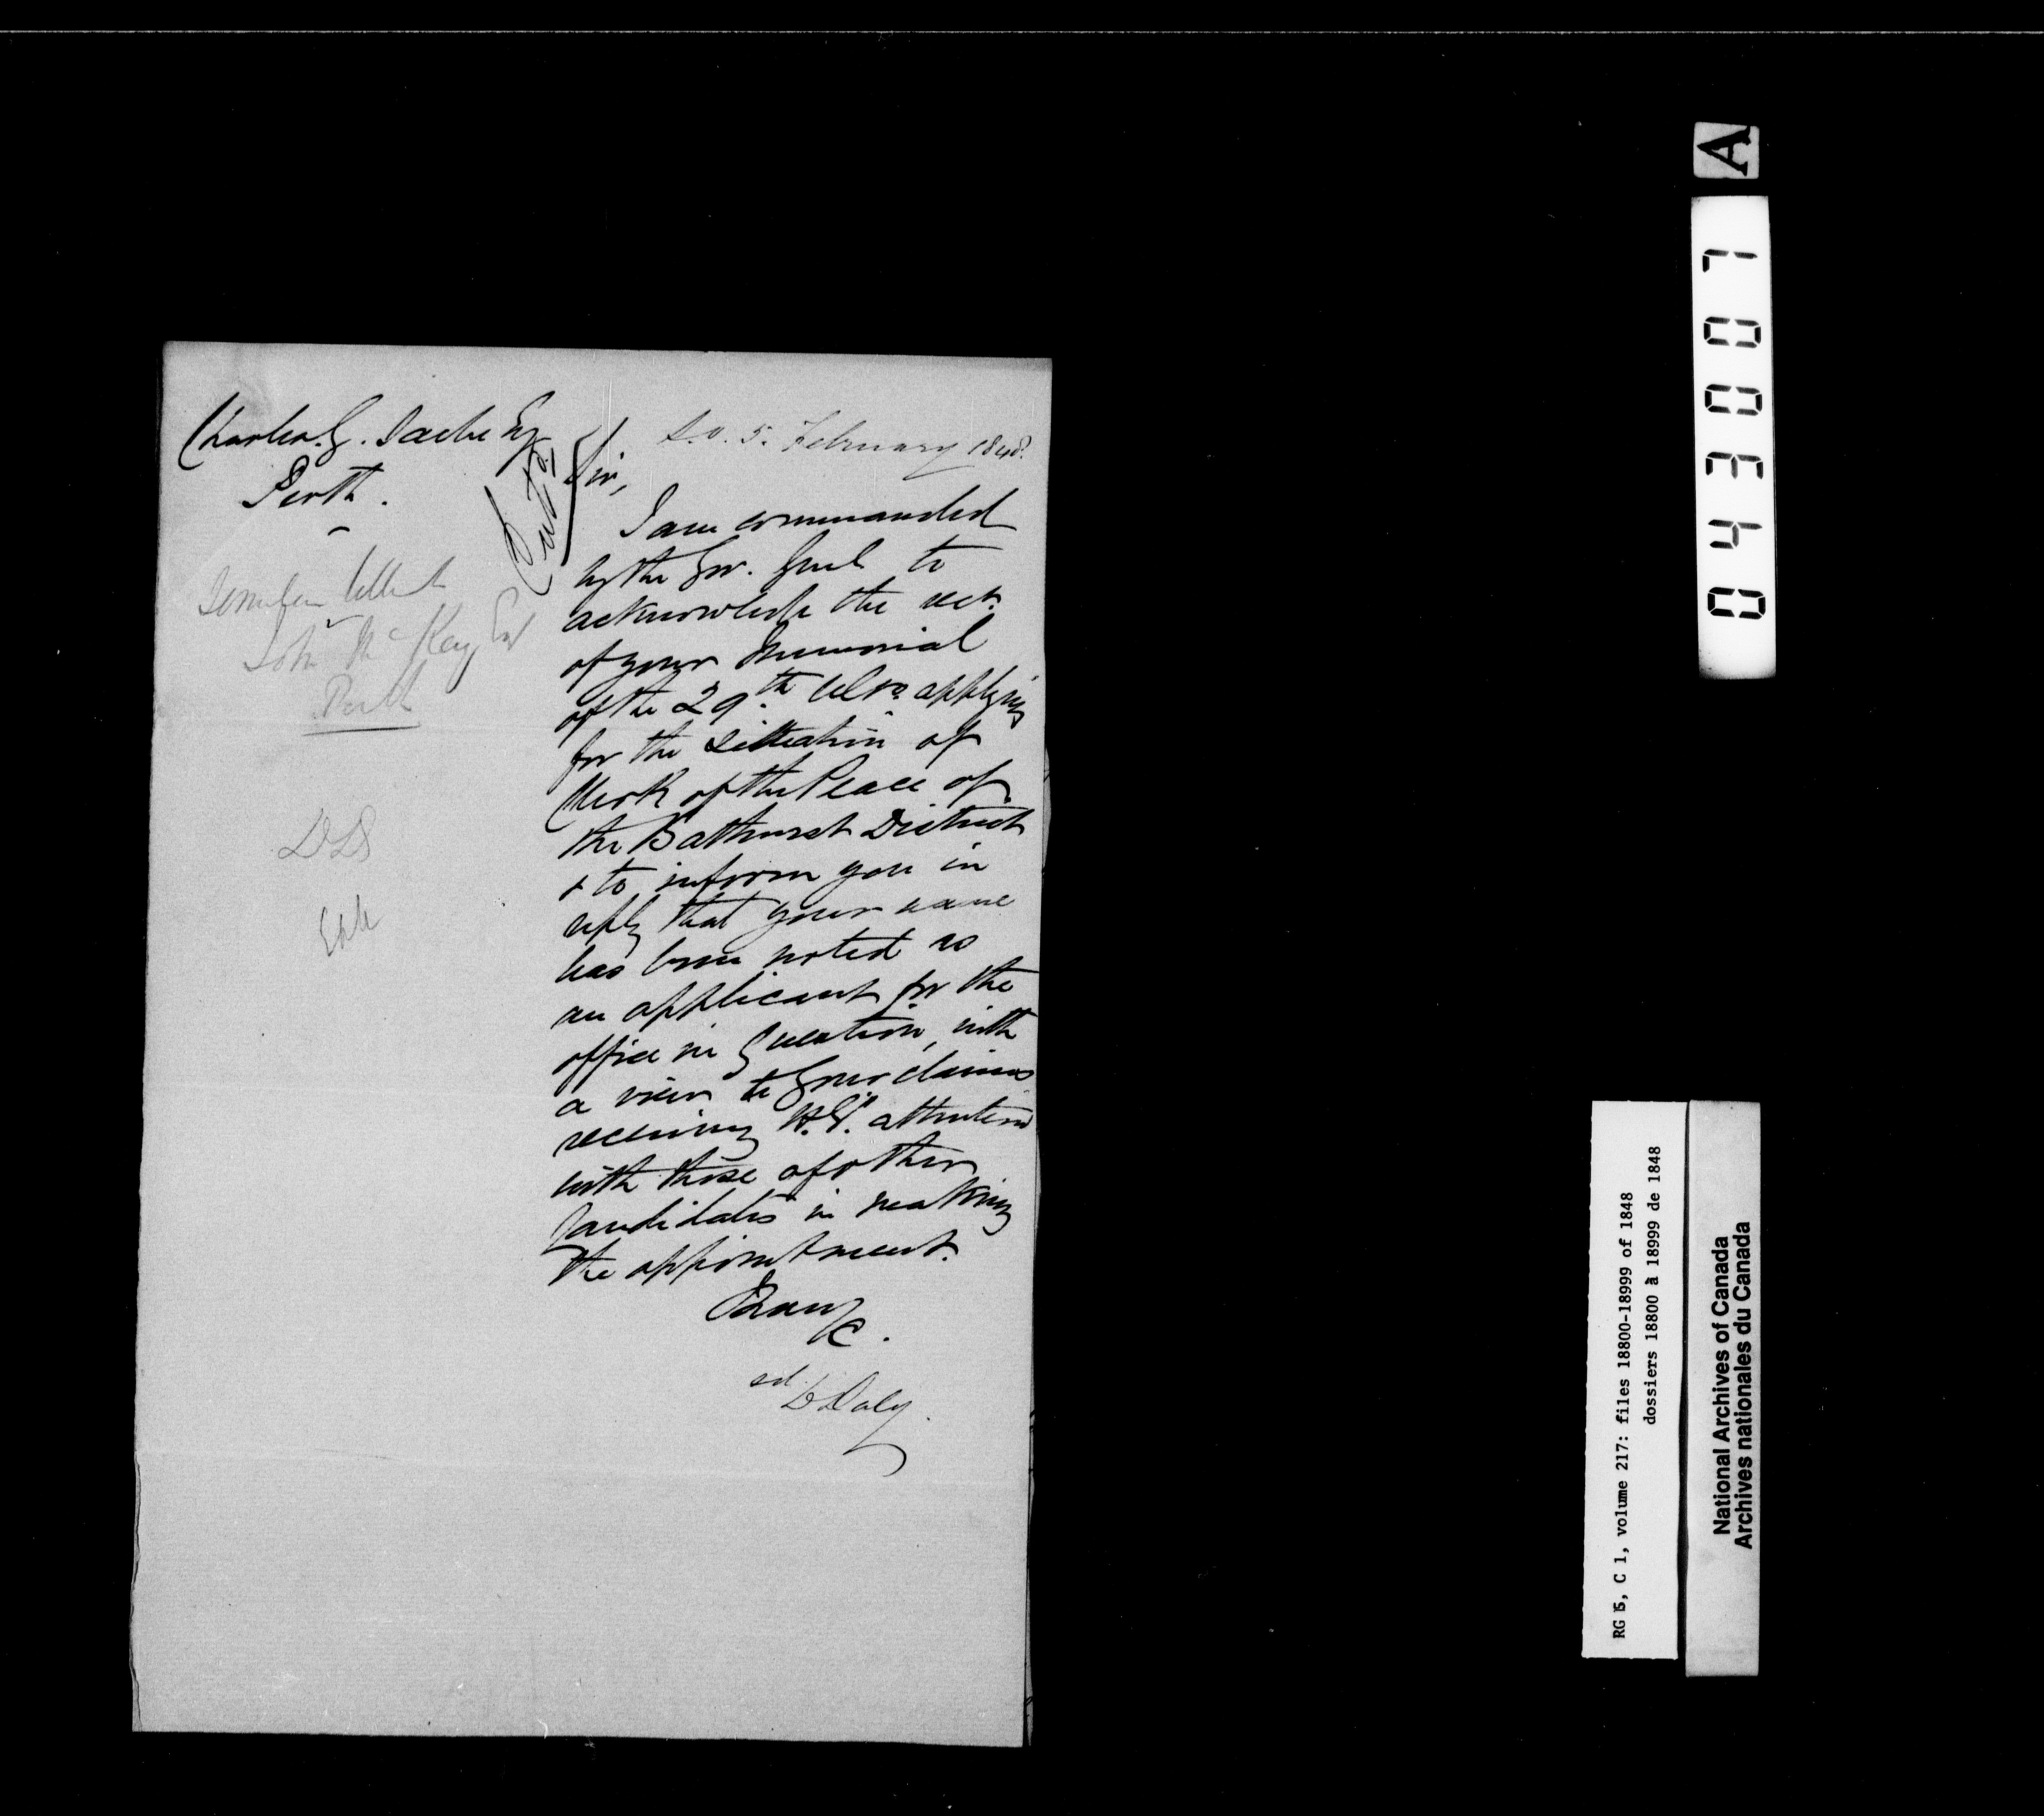 Charles G. Sache Esq
Perth.
S.O. 5. February 1848.
Sir,
I am commanded
by the Gov. Genl to
acknowledge the rect.
of your Memorial
of the 29.th Ulto. applying
for the Situation of
Clerk of the Peace of
the Bathurst District
& to inform you in
reply that your name
has been noted as
an applicant for the
office in question, with
a view to your claims
receiving H.E. attention
with those of other
Candidates in making
the appointment.
I have
&c.
sd. D Daly.
Similar
John McKay Esq
Perth
DD
A
043007
RG 5, C 1, volume 217: files 18800-18999 of 1848
dossiers 18800 à 18999 de 1848
National Archives of Canada
Archives nationales du Canada